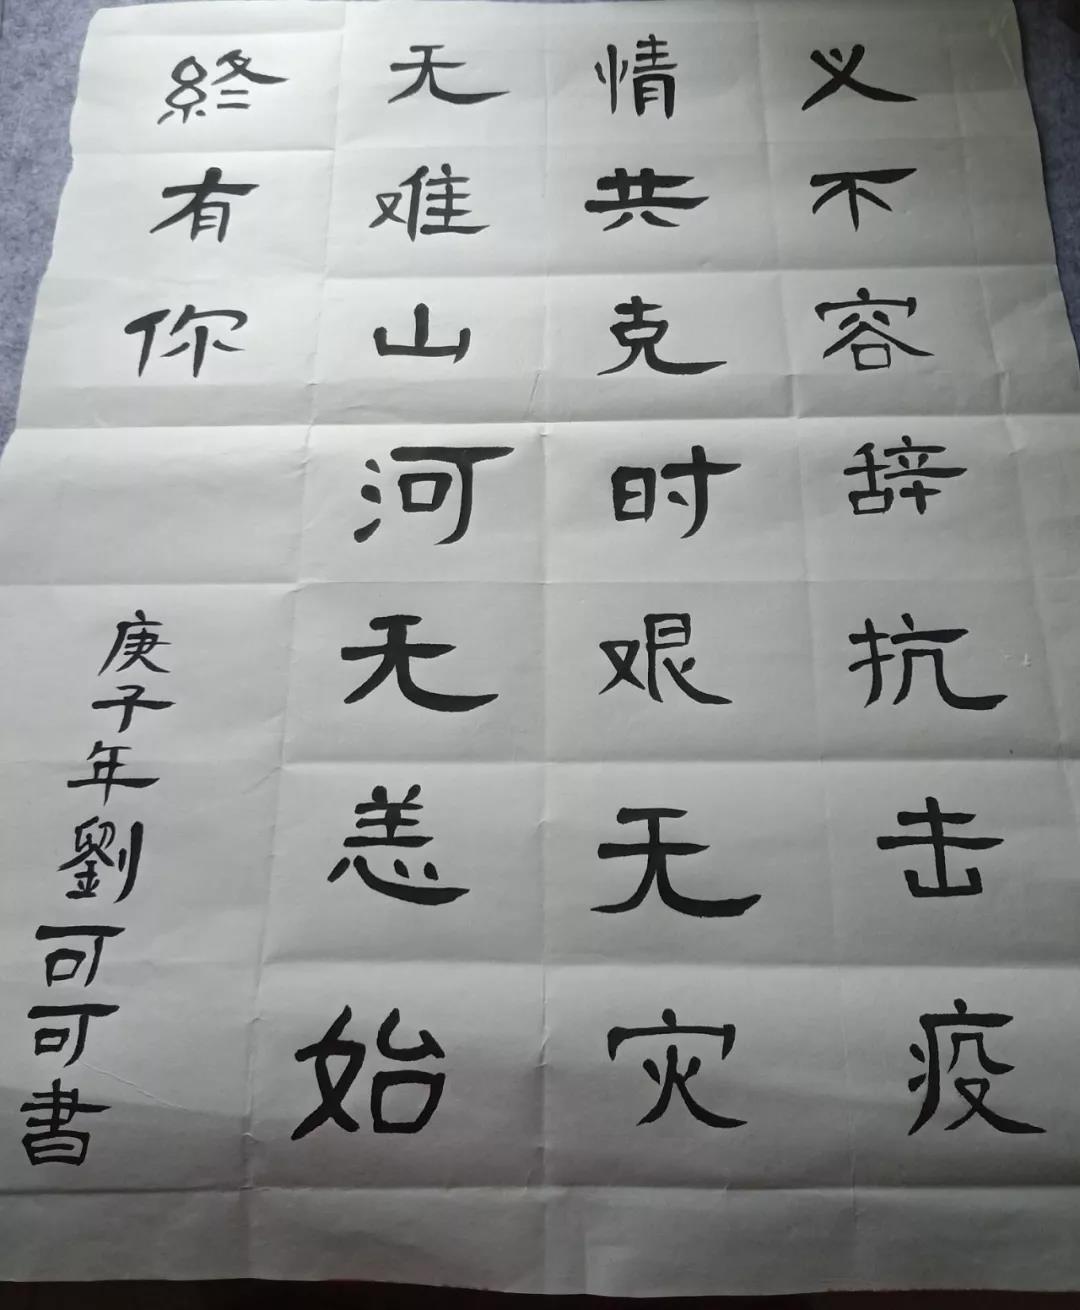 义不容辞抗击疫
情共克时艰无灾
无难山河无恙始
終有你
庚子年劉可可書